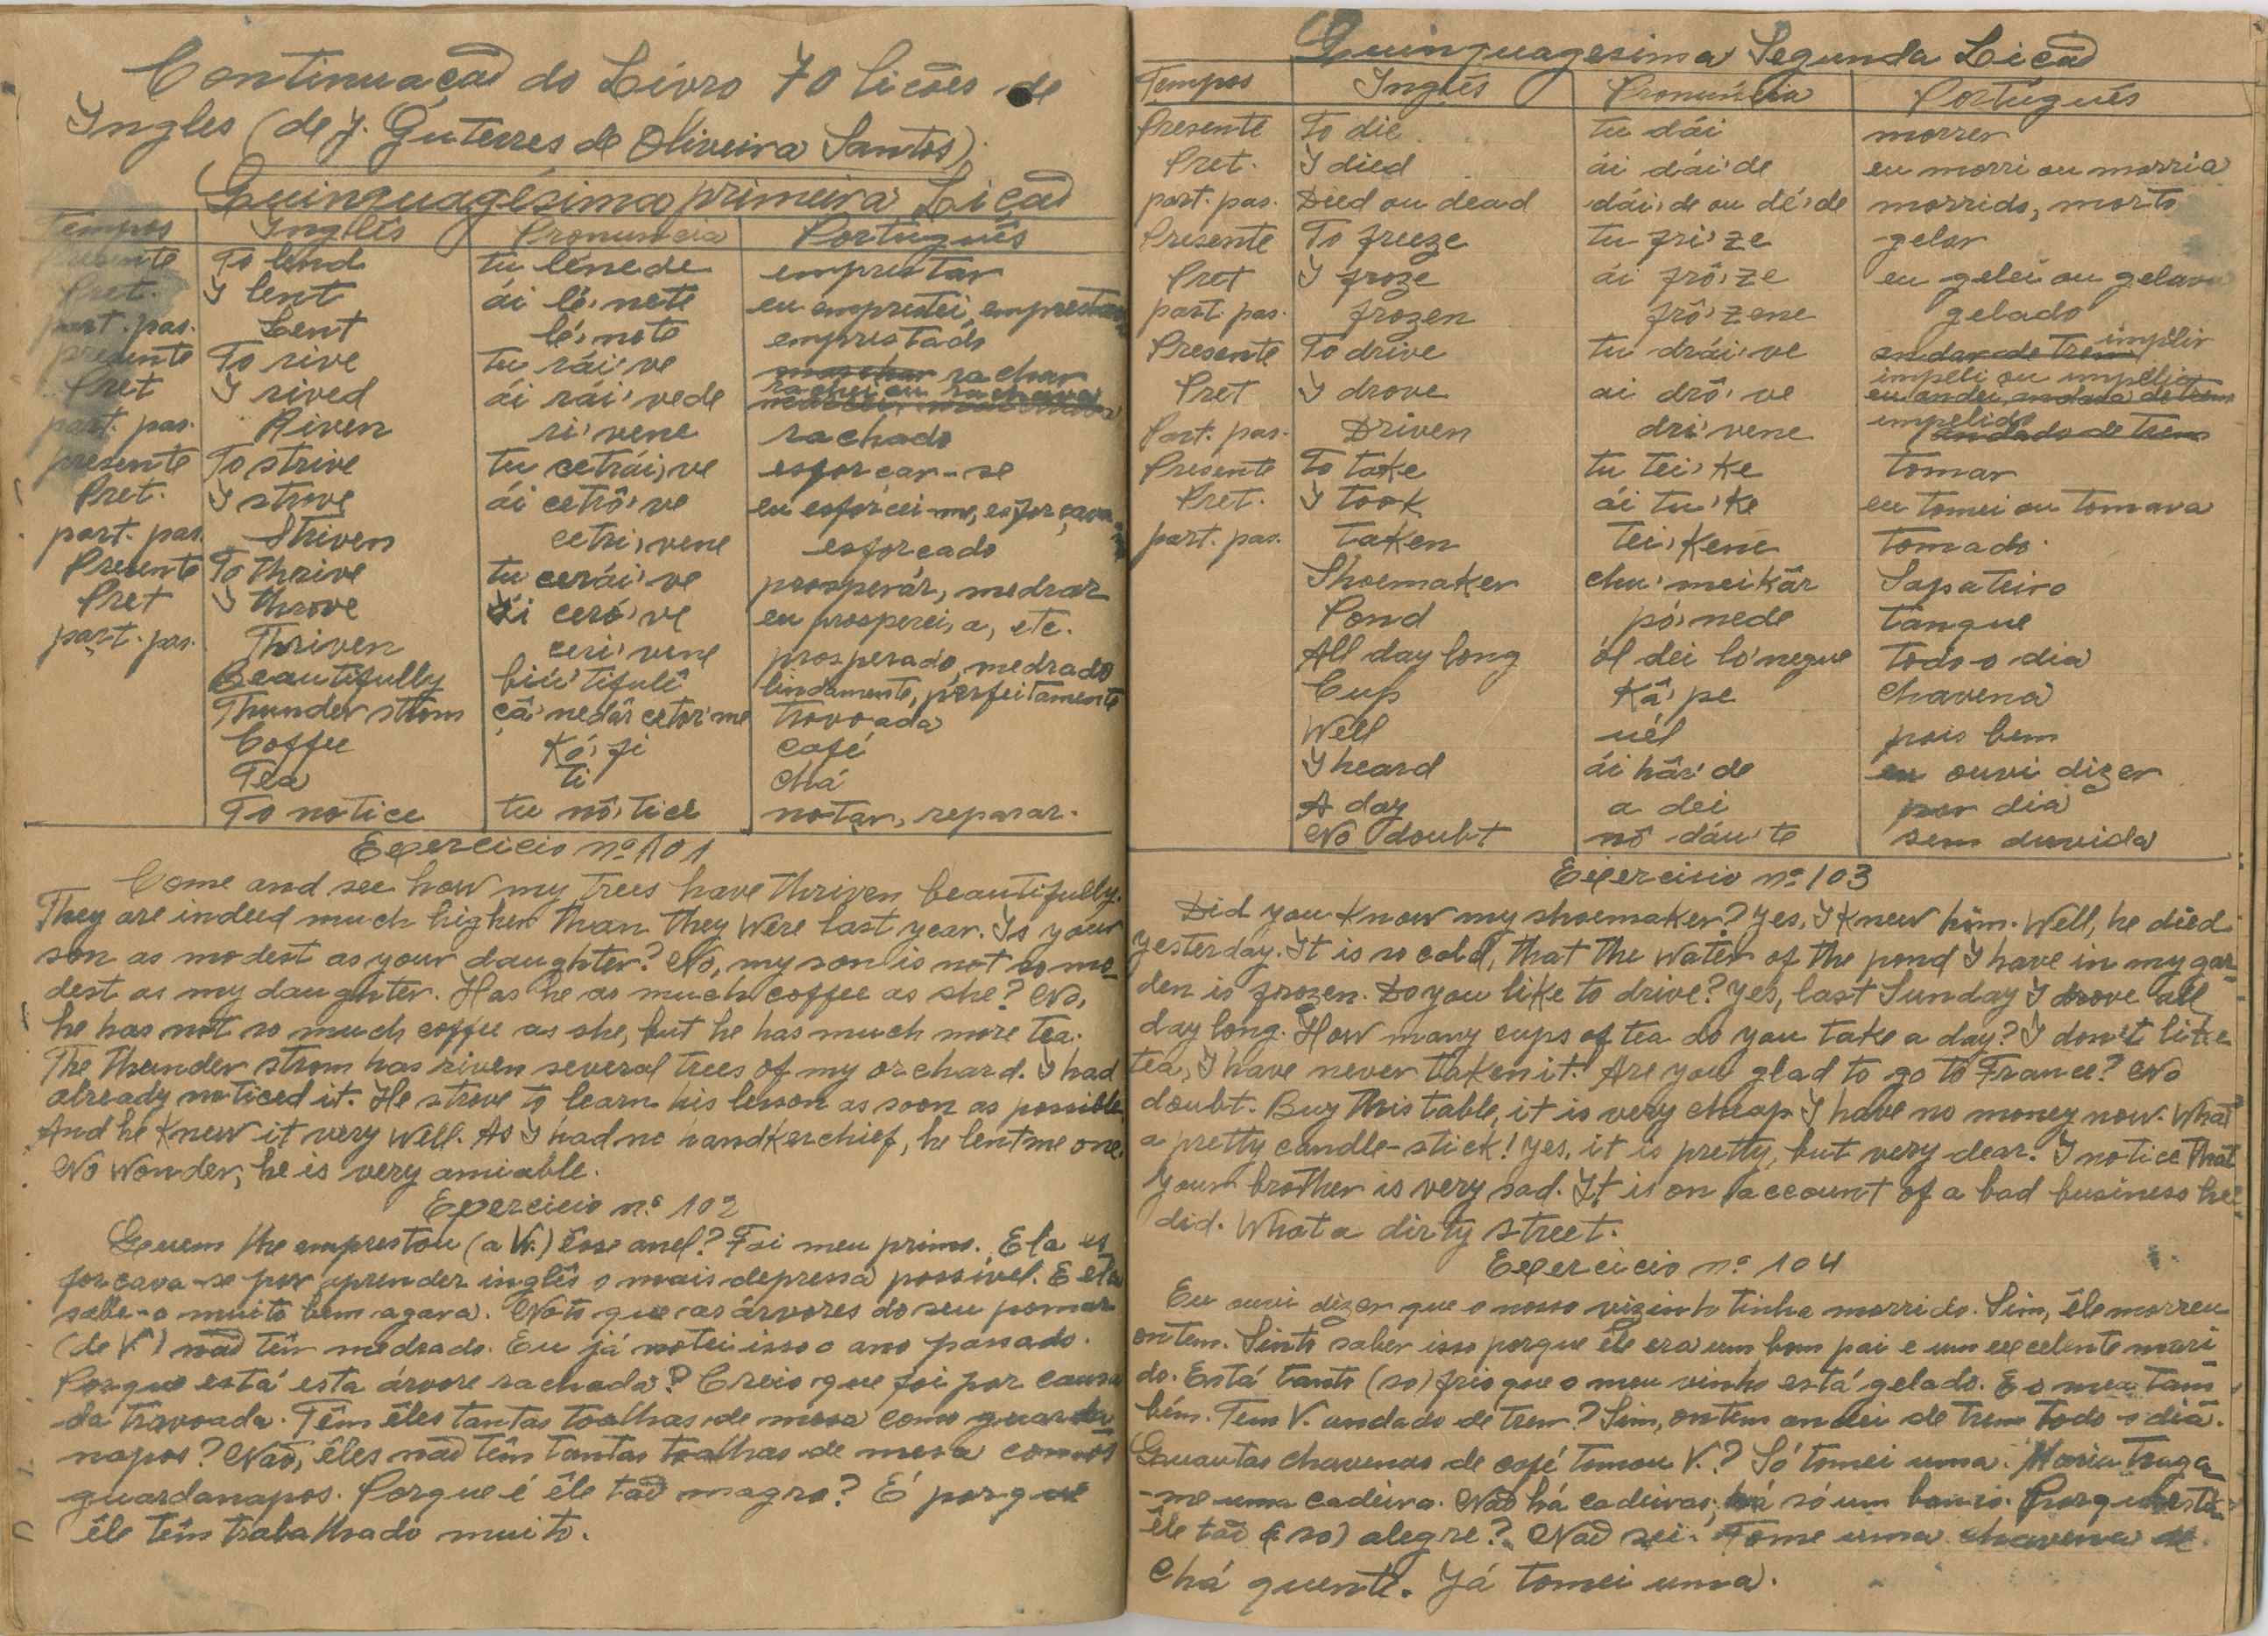 Continuação do Livro 70 lições de
Ingles (de J. Guterres de Oliveira Santos)
Quinquagésima primeira Lição
Tempos Inglês Pronuncia Português
Presente To lend tu lénede emprestar
Pret. I lent ái lé'nete eu emprestei, emprestava
part. pas. Lent lé'nete emprestado
presente To rive tu rái've rachar
Pret I rived ái rái'vede rachei ou rachava
part. pas. Riven ri'vene rachado
presente To strive tu cetrái've esforcar-se
Pret. I strove ái cetrô've eu esforcei-me, esforçava
part. pas. Striven cetri'vene esforçado
Presente To thrive tu cerái've prosperár, medrar
Pret I throve ái ceró've eu prosperei, a, etc.
part. pas. Thriven ceri'vene prosperado, medrado
Beautifully biú'tifulî lindamente, perfeitamente
Thunder strom çâ'nedâr cetor'me trovoada
Coffee Kó'fi café
Tea ti chá
To notice tu nô'tice notar, reparar.
Exercicio nº 101
Come and see how my trees have thriven beautifully.
They are indeed much higher than they were last year. Is your
son as modest as your daughter? No, my son is not so mo-
dest as my daughter. Has he as much coffee as she? No,
he has not so much coffee as she, but he has much more tea.
The thunder strom has riven several trees of my orchard. I had
already noticed it. He strove to learn his lesson as soon as possible.
And he knew it very well. As I had no handkerchief, he lent me one.
No wonder, he is very amiable.
Exercicio nº 102
Quem lhe emprestou (a V.) êsse anel? Foi meu primo. Ela es
forcava-se por aprender inglês o mais depressa possivel. E ela
sabe-o muito bem agora. Noto que as árvores do seu pomar
(de V.) não têm medrado. Eu já notei isso o ano passado.
Porque está esta árvore rachada? Creio que foi por causa
da trovoada. Têm êles tantas toalhas de mesa como guarda
napos? Não, êles não têm tantas toalhas de mesa como
guardanapos. Porque é êle tão magro? É porque
êle têm trabalhado muito.
Quinquagesima Segunda Lição
Tempos Inglês Pronúncia Português
Presente To die tu dái morrer
Pret. I died ái dái'de eu morri ou morria
part. pas. Died ou dead dái'de ou dé'de morrido, morto
Presente To freeze tu fri'ze gelar
Pret I froze ái frô'ze eu gelei ou gelava
part. pas. frozen frô'zene gelado
Presente To drive tu drái've andar de trem implir
Pret I drove ai drô've impeli ou impelia eu andei, andava de trem
Part. pas. Driven dri'vene impelido andado de trem
Presente To take tu tei'ke tomar
Pret. I took ái tu'ke eu tomei ou tomava
part. pas. Taken Tei'kene Tomado
Shoemaker chu'meikâr Sapateiro
Pond pó'nede tanque
All day long ól dei lo'negue Todo o dia
Cup Kâ'pe chavena
Well uél pois bem
I heard ái hâr'de eu ouvi dizer
A day a dei por dia
No doubt nô dáu'te sem duvida
Exercicio nº 103
Did you know my shoemaker? Yes, I knew him. Well, he died
yesterday. It is so cold, that the water of the pond I have in my gar-
den is frozen. Do you like to drive? Yes, last Sunday I drove all
day long. How many cups of tea do you take a day? I don't like
tea, I have never taken it. Are you glad to go to France? No
doubt. Buy this table, it is very cheap I have no money now. What
a pretty candle-stick! Yes, it is pretty, but very dear. I notice that
your brother is very sad. It is on account of a bad business he
did. What a dirty street.
Exercicio nº 104
Eu ouvi dizer que o nosso vizinho tinha morrido. Sim, êle morreu
ontem. Sinto saber isso porque êle era um bom pai e um excelente mari
do. Está tanto (so) frio que o meu vinho está gelado. E o meu tam
bém. Tem V. andado de trem? Sim, ontem andei de trem todo o dia.
Quantas chavenas de café tomou V.? Só tomei uma. Maria traga
-me uma cadeira. Não há cadeiras, há só um banco. Porque está
êle tão (so) alegre? Não sei. Tome uma chavena de
chá quente. Já tomei uma.